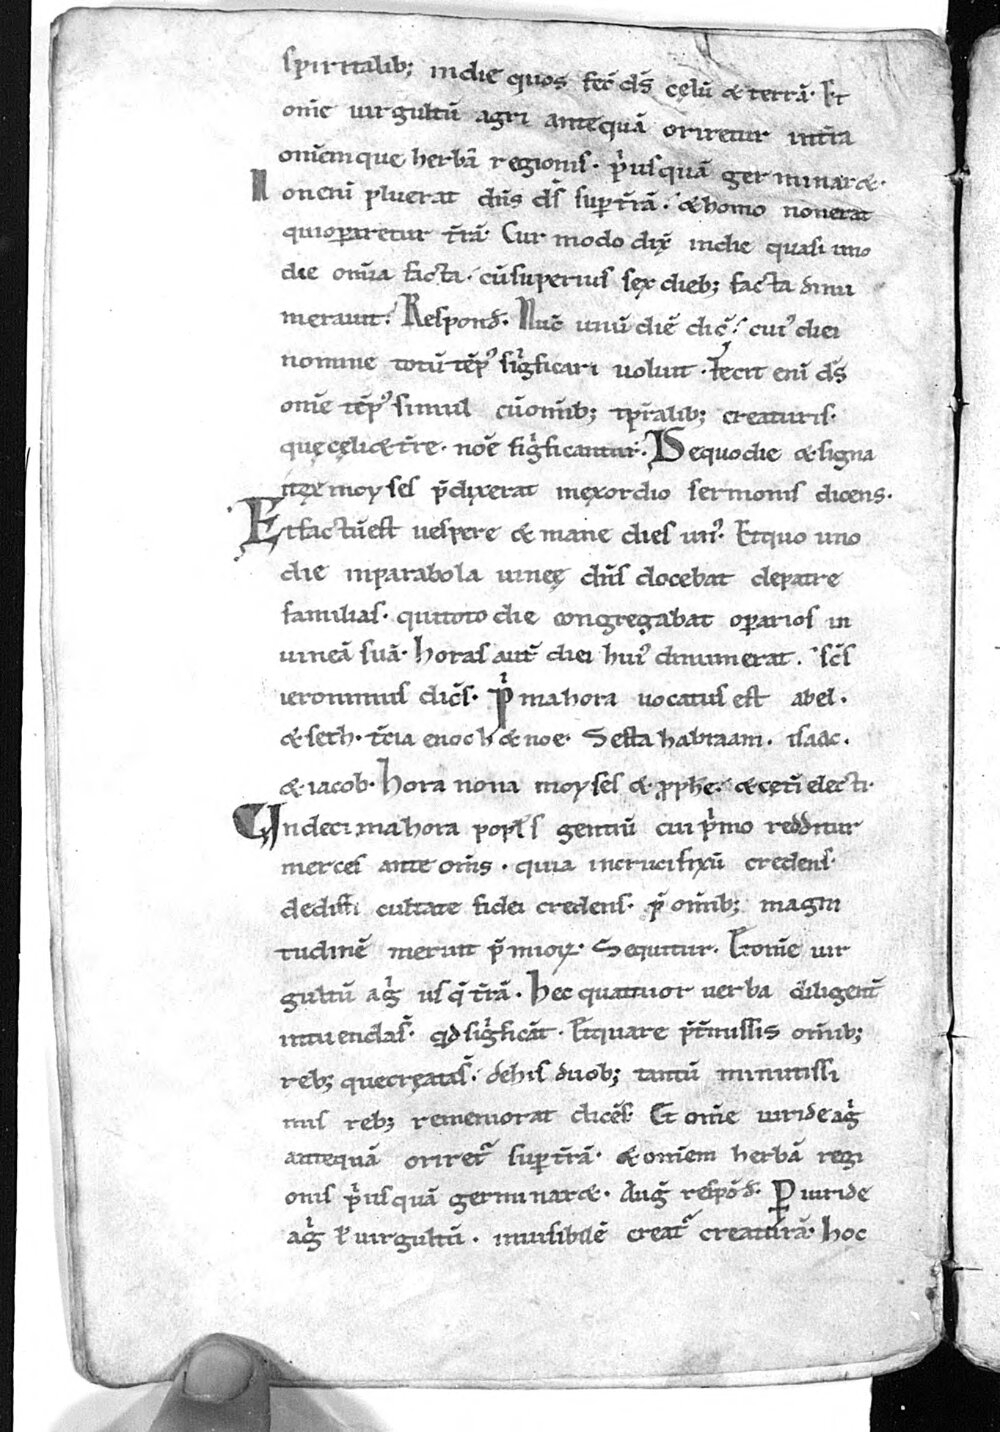 spiritalib; indie quos fec̄ d̄s cęlū & terrā. Et
om̄e uirgultū agri antequā oriretur int̄ra
om̄emque herbā regionis. p̍usquā germinar&.
Non eni pluerat dn̄s d̄s sup t̄rā. & homo nonerat
qui operaretur t̄rā. Cur modo dix̄ indie quasi uno
die om̄ia facta. cū superius sex dieb; facta dinu
merauit. Respond̄. Nūc unū diē dic̄. cui' diei
nomine totū tēp' sig̍ficari uoluit. Fecit eni d̄s
om̄e tēp' simul cū om̄ib; tp̄ralib; creaturis.
quę cęli & t̄re. noē sig̍ficantur. De quo die & signa
moyses p̄dixerat inexordio sermonis dicens.
Et factū est uespere & mane dies un'. Et quo uno
die inparabola uineę dn̄s docebat depatre
familias. qui toto die congregabat operarios in
uineā suā. horas aut̄ diei hui' dinumerat. sc̄s
ieronimus dic̄s. P̍ma hora uocatus est abel.
& seth. t̄cia enoch & noe. Sesta habraam. isaac.
& iacob. hora nona moyses & p̄phe. & cęti electi.
Undecima hora popl̄s gentiū cui p̍mo redditur
merces ante om̄s. quia incrucifixū credens
dedisti cultate fidei credens. p̄ om̄ib; magni
tudinē meruit p̄mioꝝ. Sequitur. Et om̄e uir
gultū ag̍ usq t̄rā. hec quattuor uerba diligent̄
intuendas̄. qd̄ sig̍ficāt. Et quare p̄t̄missis om̄ib;
reb; que creatas̄. dehis duob; tantū minutissi
mis reb; rememorat dicēs. Et om̄e uiride ag̍
antequā oriret̄ sup t̄rā. & om̄em herbā regi
onis p̍usquā germinar&. Auḡ respōd̄. P uiride
ag̍ ł uirgultū. inuisibilē creat̄ creaturā. hoc